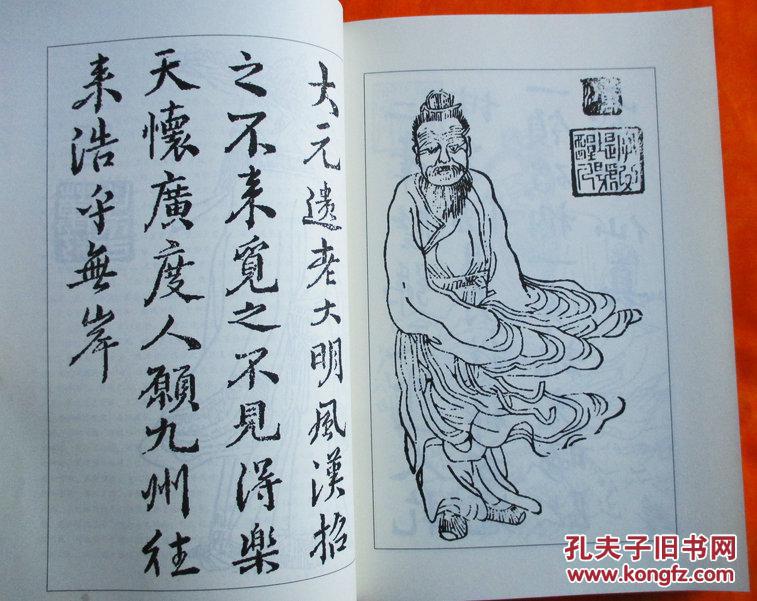 大元遺老大明風漢招
之不来覓之不見得樂
天懷廣度人願九州往
来浩乎無岸
孔夫子旧书网
www.kongfz.com